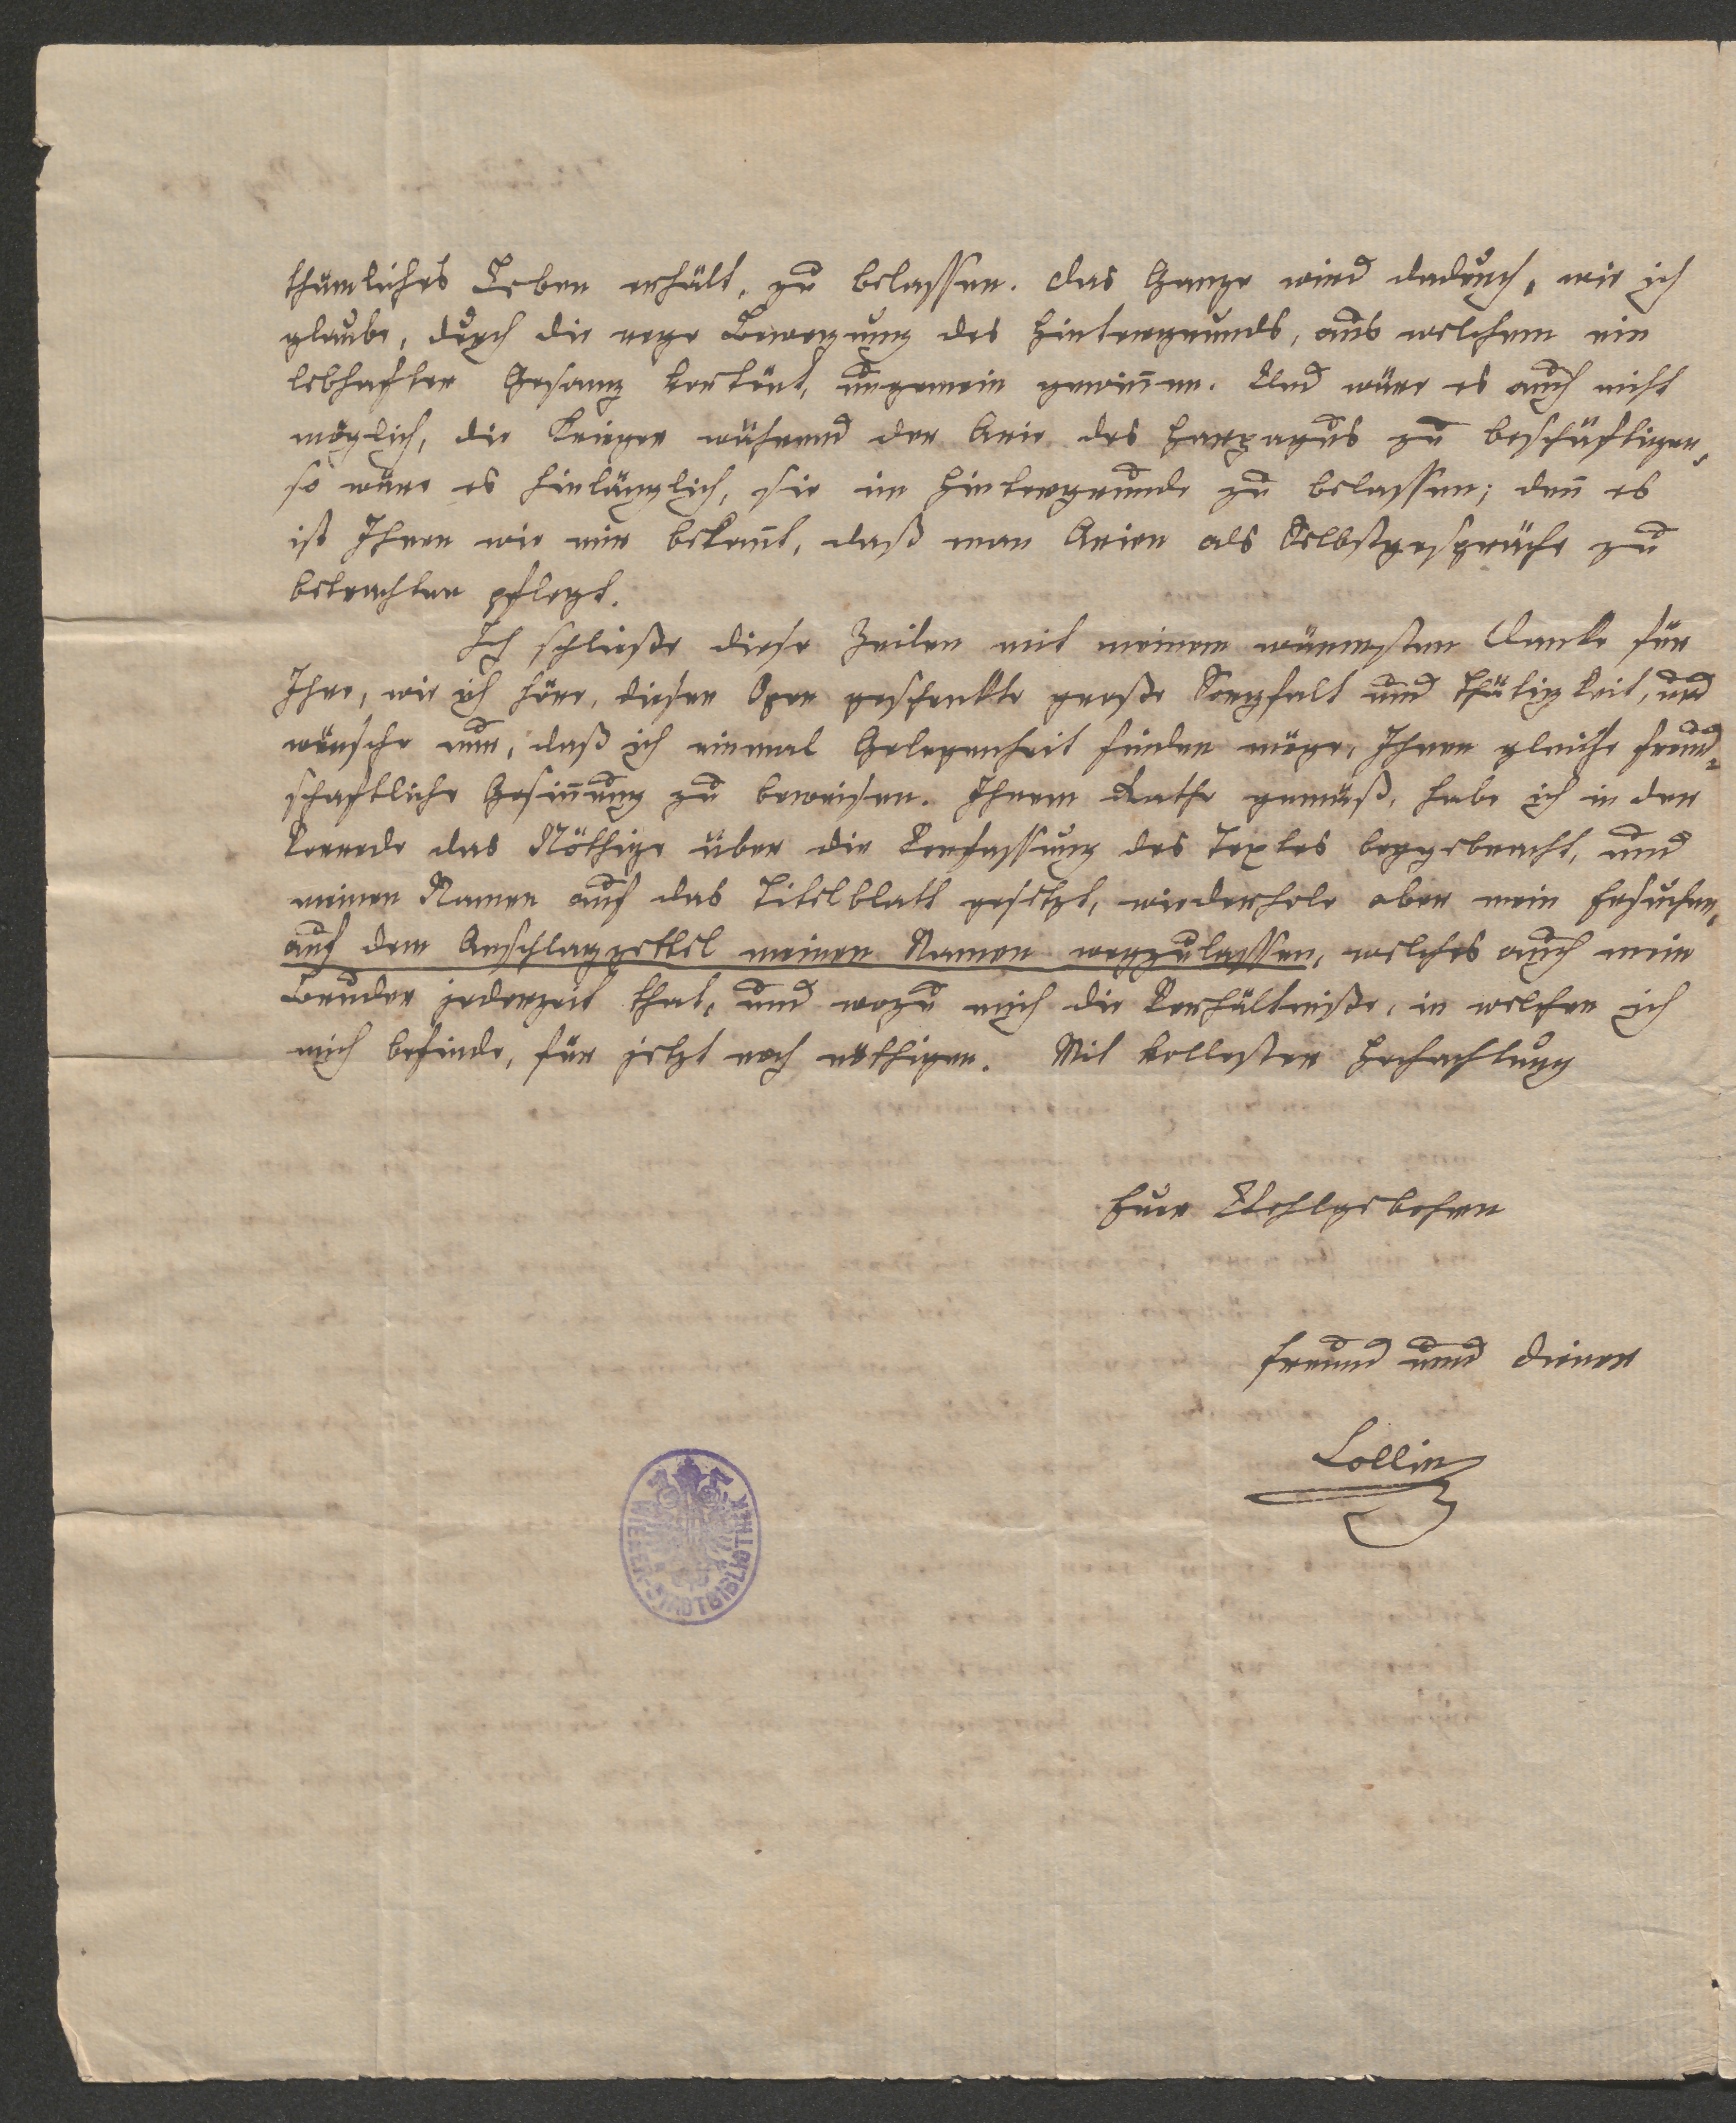 thümliches Leben erhält, zu belassen. Das Ganze wird dadurch, wie ich
glaube, durch die rege Bewegung des Hintergrunds, aus welchem ein
lebhafter Gesang vortönt, ungemein gewin̅en. Und wäre es auch nicht
möglich, die Krieger während der Arie des Harpagus zu beschäftigen,
so wäre es hinlänglich, sie im Hintergrunde zu belassen; den̅ es
ist Ihnen wie mir bekan̅t, daß man Arien als Selbstgespräche zu
betrachten pflegt.
Ich schließe diese Zeilen mit meinem wärmesten Danke für
Ihre, wie ich höre, dieser Oper geschenkte große Sorgfalt und Thätigkeit, und
wünsche nur, daß ich einmal Gelegenheit finden möge, Ihnen gleiche freund-
schaftliche Gesin̅ung zu beweisen. Ihrem Rathe gemäß, habe ich in der
Vorrede das Nöthige über die Verfassung des Textes beygebracht, und
meinen Namen auf das Titelblatt gesetzt, wiederhole aber mein Ersuchen,
auf dem Anschlagzettel meinen Namen wegzulassen, welches auch mein
Bruder jederzeit that, und wozu mich die Verhältniße, in welchen ich
mich befinde, für jetzt noch nöthigen. Mit vollester Hochachtung
Euer Wohlgebohren
Freund und Diener
Collin
WIENER STADTBIBLIOTHEK